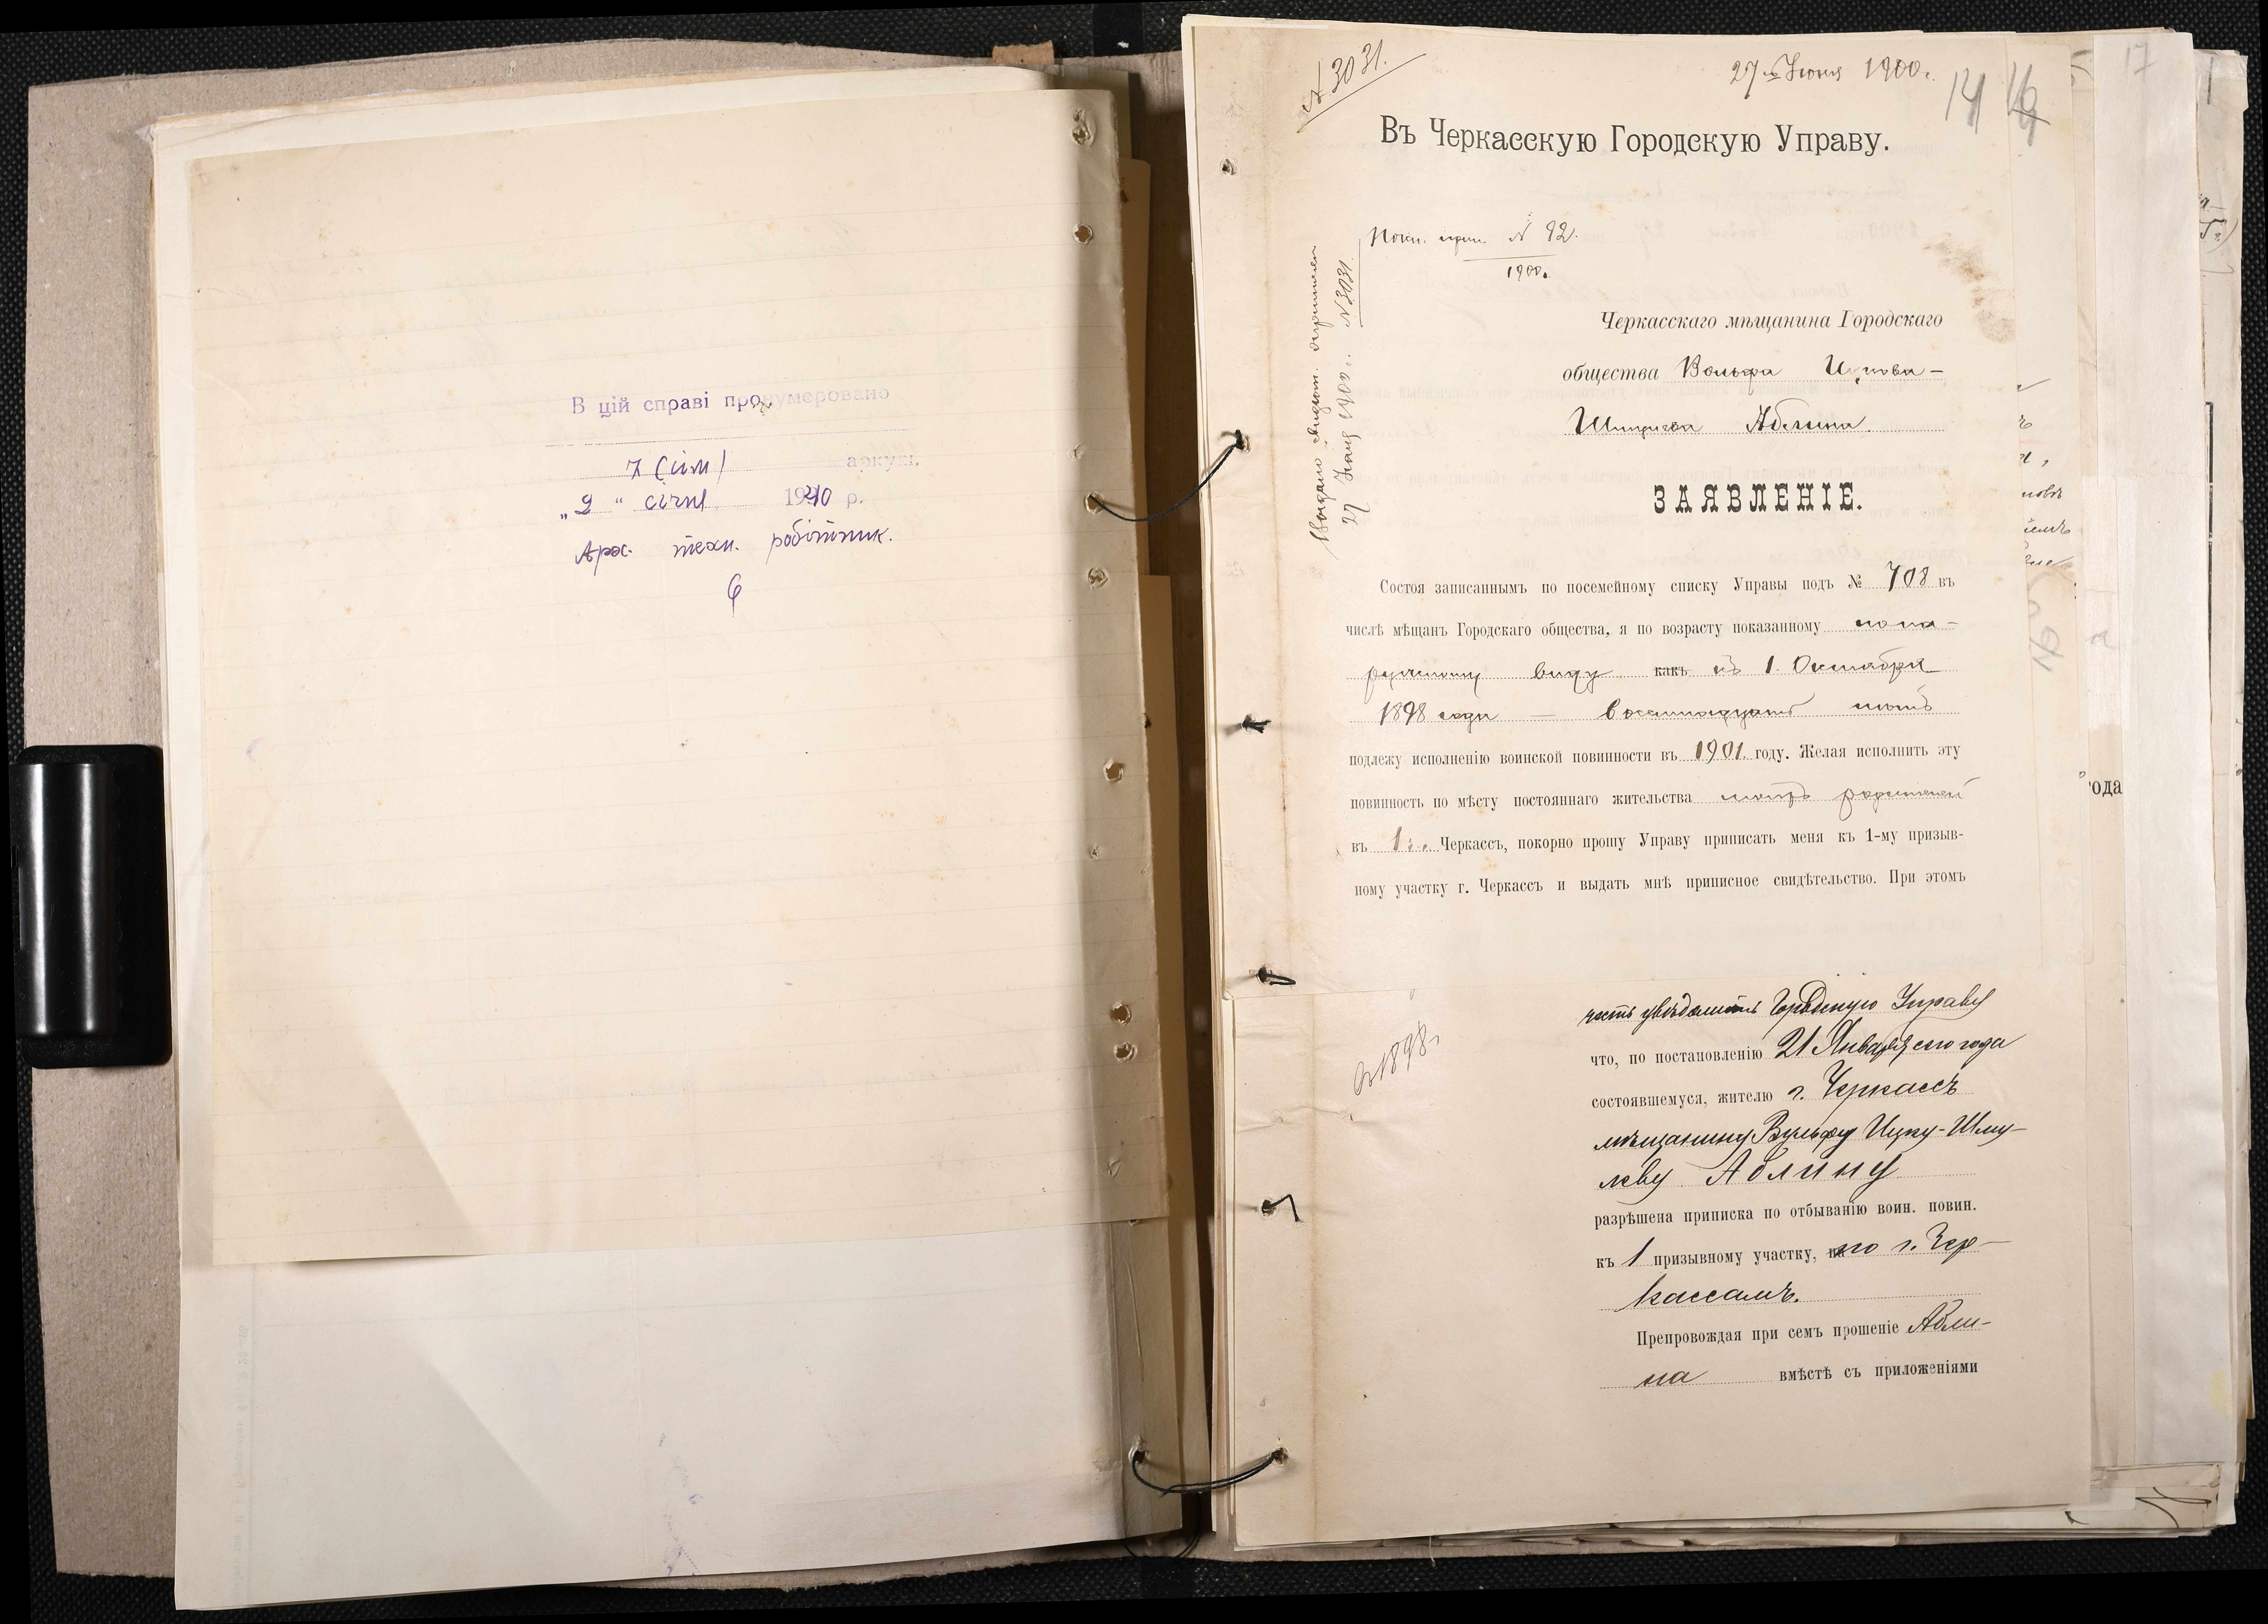 В цій справі пронумеровано
7 (сім) аркуш.
„2“ січня 1940 р.
Арх. техн. робітник.
№ 3031.
27 Июня 1900 г.
14
Въ Черкасскую Городскую Управу.
№ 92.
1900 г.
27 1900 г. № 3031
Черкасскаго мѣщанина Городскаго
общества Вольфа Ицкова-
Аблина.
ЗАЯВЛЕНІЕ.
Состоя записаннымъ по посемейному списку Управы подъ № 708 въ
числѣ мѣщанъ Городскаго общества, я по возрасту показанному по на-
ружному виду какъ къ 1 Октября
1898 года — восемнадцать лѣтъ
подлежу исполненію воинской повинности въ 1901 году. Желая исполнить эту
повинность по мѣсту постояннаго жительства моихъ родителей
въ Черкассъ, покорно прошу Управу приписать меня къ 1-му призыв-
ному участку г. Черкассъ и выдать мнѣ приписное свидѣтельство. При этомъ
честь увѣдомить Городскую Управу
что, по постановленію 21 Января сего года
состоявшемуся, жителю г. Черкассъ
мѣщанину Вульфу Ицку-Шму-
леву Аблину
разрѣшена приписка по отбыванію воин. повин.
къ 1 призывному участку, по г. Чер-
кассамъ.
Препровождая при семъ прошеніе Абли-
на вмѣстѣ съ приложеніями
17
ода